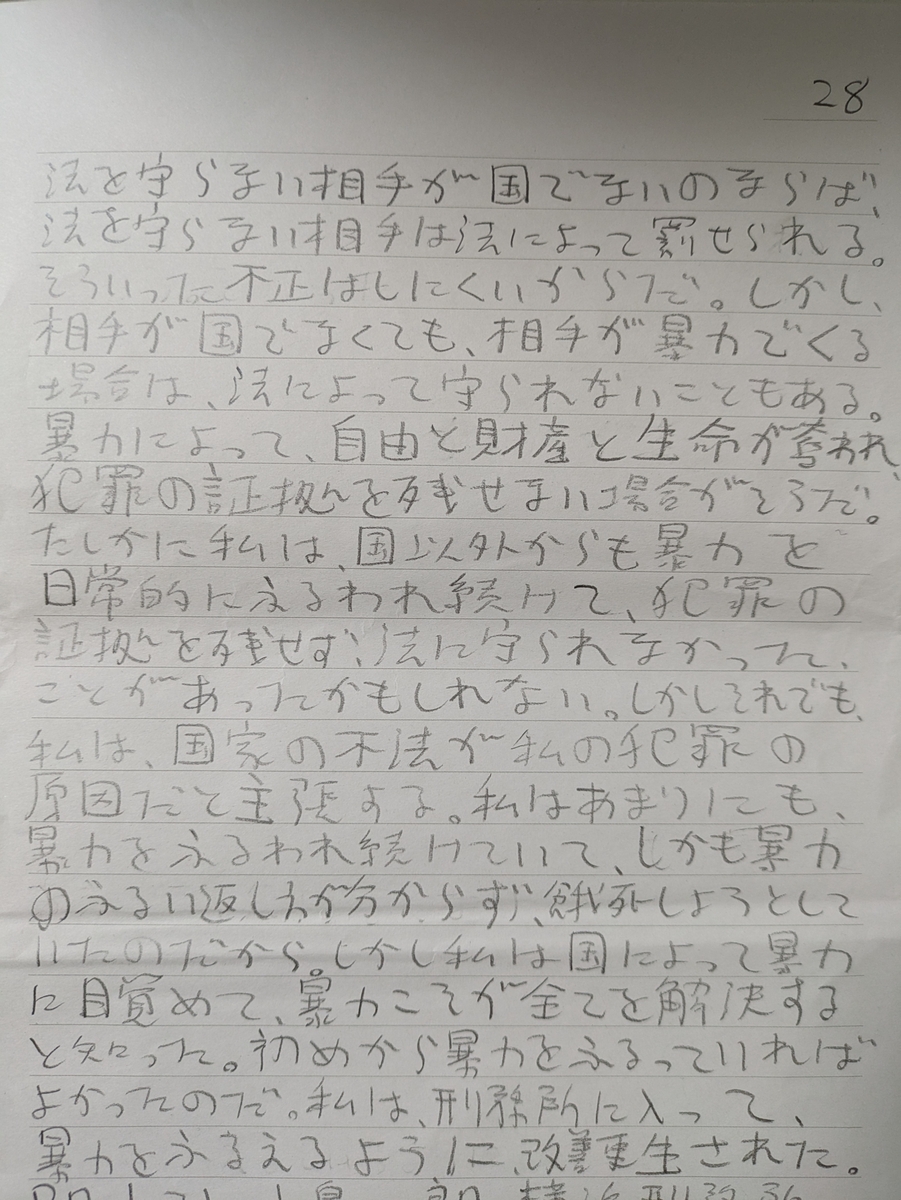 28
法を守らない相手が国でないのならば、
法を守らない相手は法によって罰せられる。
そういった不正はしにくいからだ。しかし、
相手が国でなくても、相手が暴力でくる
場合は、法によって守られないこともある。
暴力によって、自由と財産と生命が奪われ、
犯罪の証拠を残せない場合がそうだ。
たしかに私は、国以外からも暴力を
日常的にふるわれ続けて、犯罪の
証拠を残せず、法に守られなかった、
ことがあったかもしれない。しかしそれでも、
私は、国家の不法が私の犯罪の
原因だと主張する。私はあまりにも、
暴力をふるわれ続けていて、しかも暴力
のふるい返し方が分からず、餓死しようとして
いたのだから。しかし私は国によって暴力
に目覚めて、暴力こそが全てを解決する
と知った。初めから暴力をふるっていれば
よかったのだ。私は、刑務所に入って、
暴力をふるえるように、改善更生された。